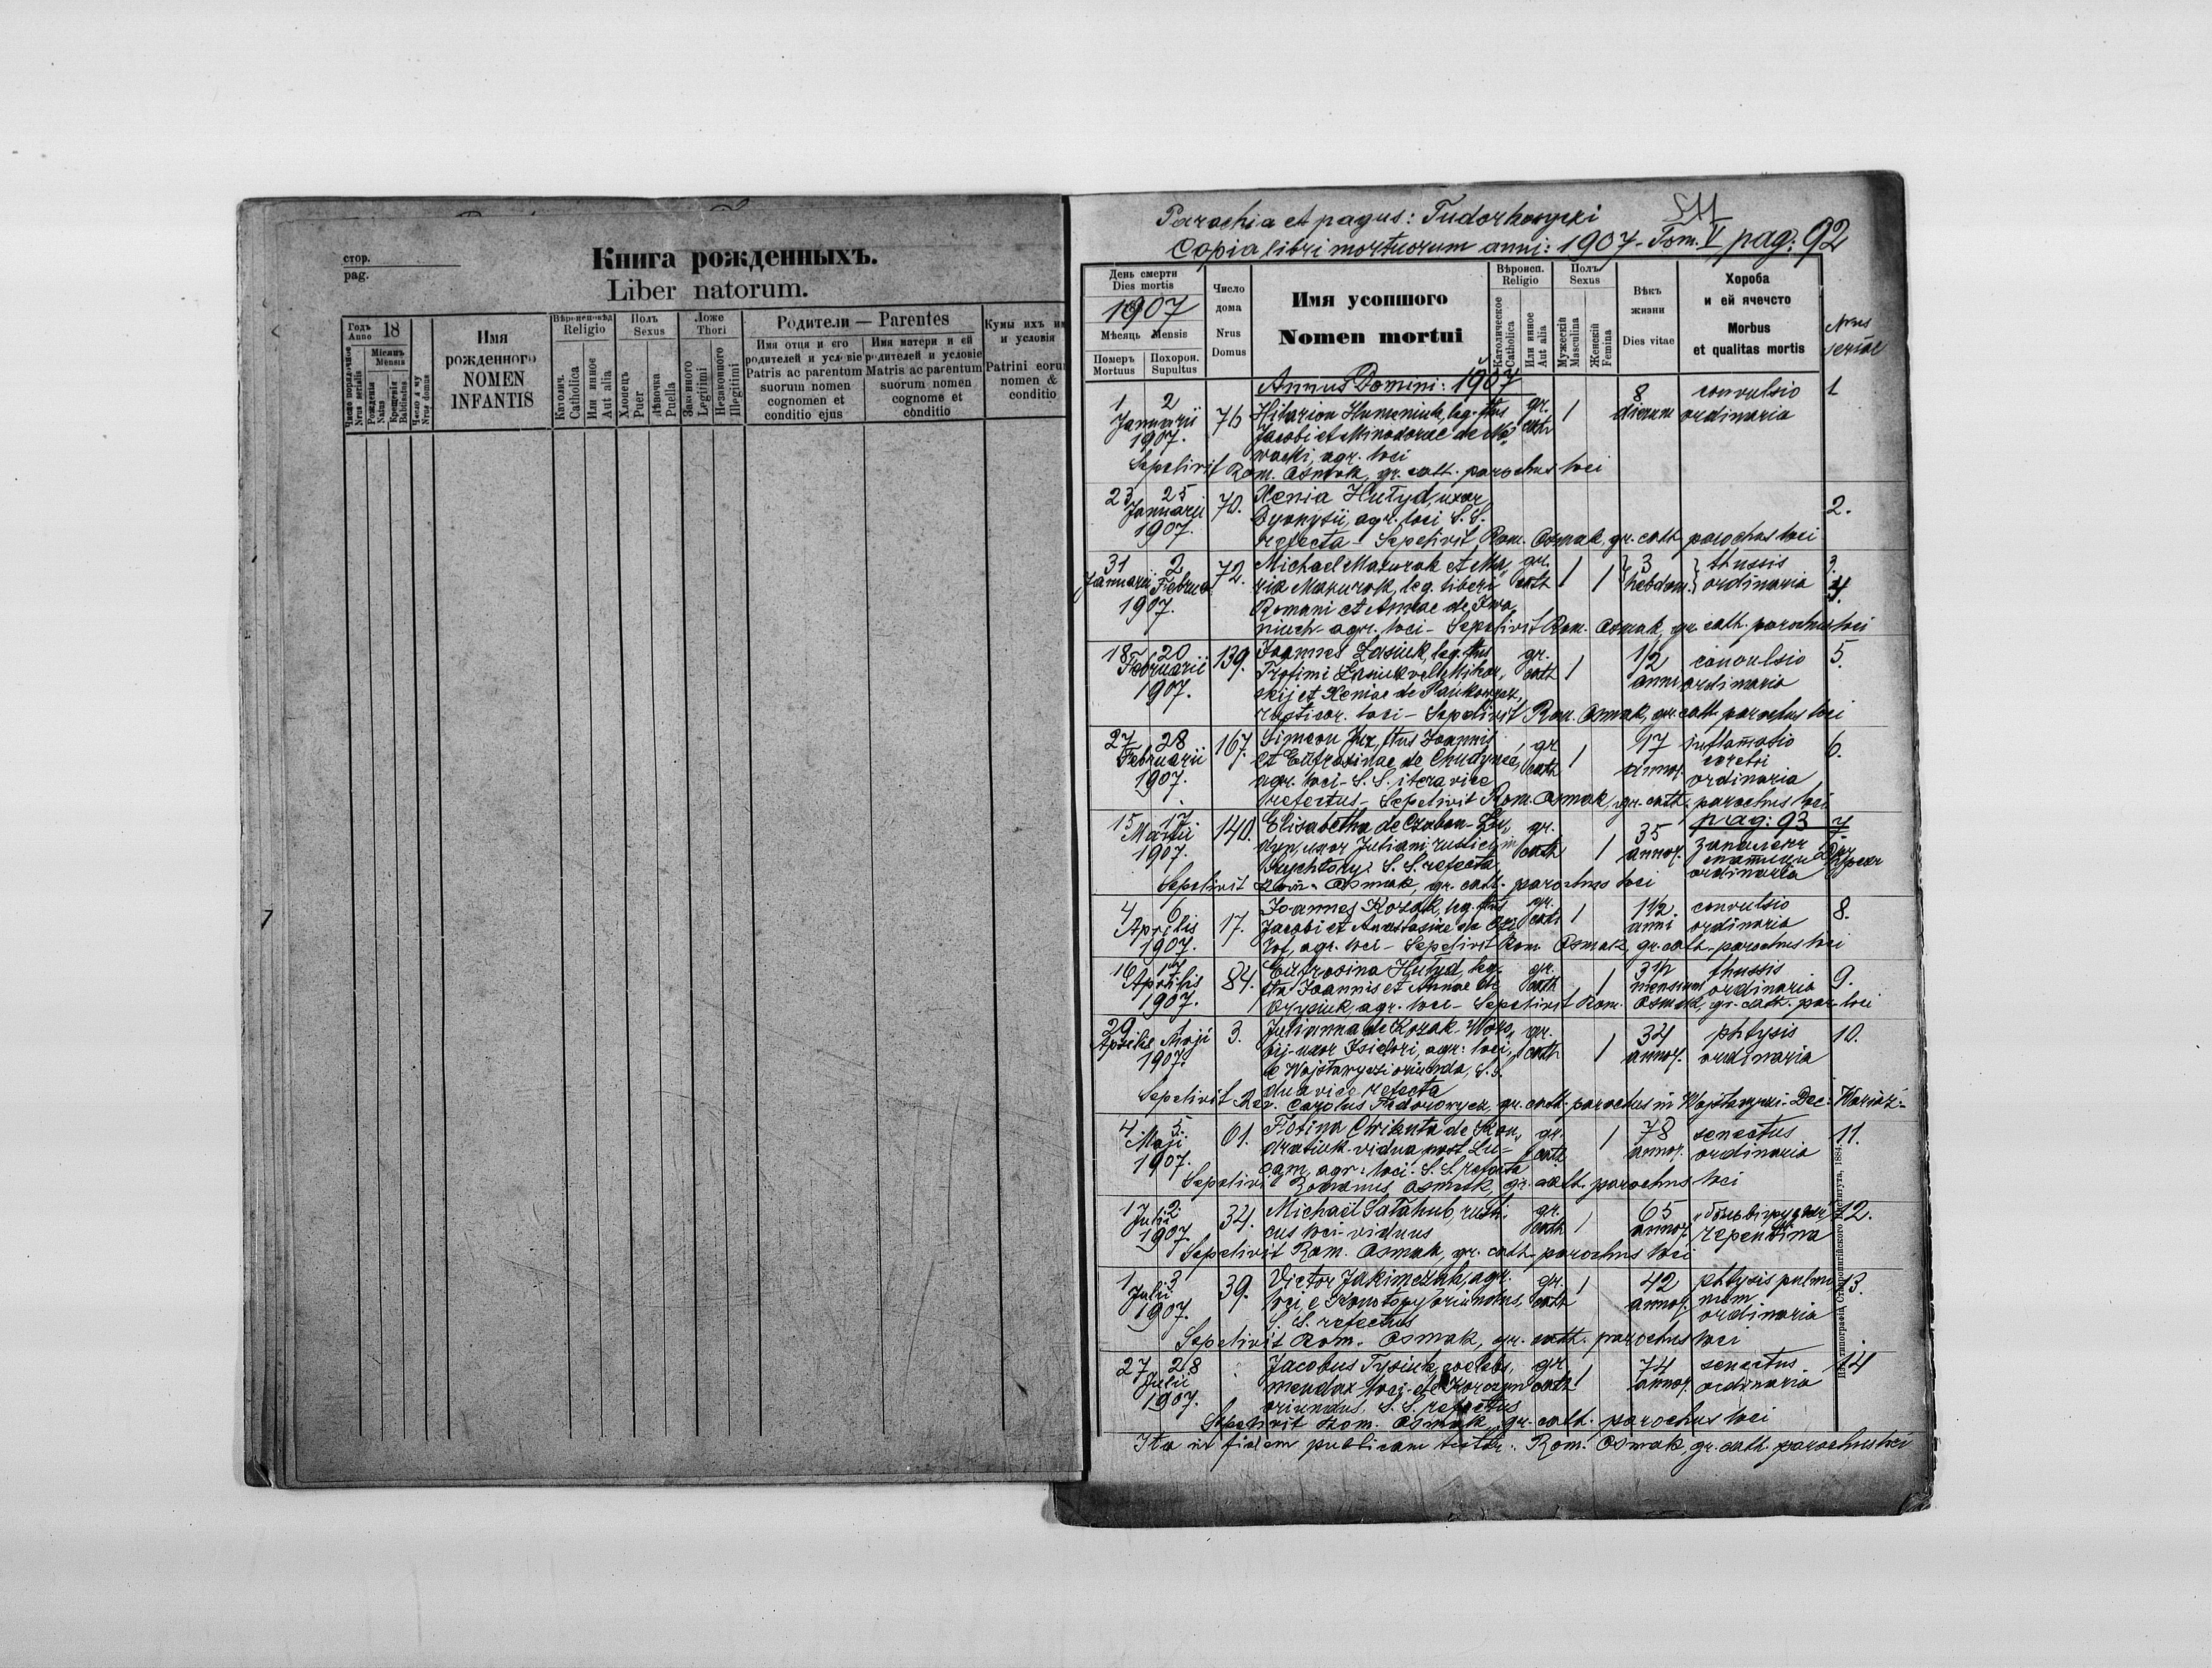 стор.
pag.
Книга рожденныхъ.
Liber natorum.
Годъ Anno 18
Мѣсяць Mensis
Число порядочное Nrus serialis
Рождения Natus
Крещения Babtisatus
Число дому Nrus domus
Имя
рожденного
NOMEN
INFANTIS
Вѣроисповѣд Religio
Католич. Catholica
Или инное Aut alia
Полъ Sexus
Хлопець Puer
Дѣвочка Puella
Ложе Thori
Законного Legitimi
Незаконного Illegitimi
Родители — Parentes
Имя отца и его
родителей и условіе
Patris ac parentum
suorum nomen
cognomen et
conditio ejus
Имя матери и ей
родителей и условіе
Matris ac parentum
suorum nomen
cognome et
conditio
Кумы ихъ
и условія
Patrini
nomen &
conditio
Parochia et pagus: Tudorkowyczki
Copia libri mortuorum anni: 1907 - Tom. V pag: 92
День смерти
Dies mortis
1907
Мѣсяць Mensis
Померъ Mortuus
Похорон. Supultus
Число
дома
Nrus
Domus
Имя усопшого
Nomen mortui
Вѣроисп. Religio
Католическое Catholica
Или инное Aut alia
Полъ Sexus
Мужескій Masculina
Женскій Femina
Вѣкъ
жизни
Dies vitae
Хороба
и ей ячечсто
Morbus
et qualitas mortis
Nrus
seriae
Annus Domini: 1907
1 2 8 convulsio 1
Januarii 76 Hilarion Humeniuk, leg. flus gr. 1 dierum ordinaria
1907. Jacobi et Minodorae de No cath
wacki, agr. loci
Sepelivit Rom. Osmak, gr. cath. parochus loci
23 25 Xenia Hułyd, uxor
Januarii 70. Dyonysii, agr. loci S. S. 2.
1907. refecta - Sepelivit Rom. Osmak, gr. cath. parochus loci
31 2 72. Michael Mazurok et Ma, gr. 3 thussis 3.
Januarii Februar ria Mazurok, leg. liberi cath 1 1 hebdom. ordinaria 4.
1907. Romani et Annae de Iwa
niuch - agr. loci - Sepelivit Rom. Osmak, gr. cath. parochus loci
18 20 139. Joannes Łasiuk, leg. flus gr. 1/2 convulsio 5.
Februarii Trofimi Łasiuk vel cath 1 anni ordinaria
1907. et Xeniae de
rusticor. loci - Sepelivit Rom. Osmak, gr. cath. parochus loci
27 28 167. Simeon flus Joannis gr 17 inflamatio 6.
Februarii et Eufrosinae de cath 1 annor. cerebri
1907. agr. loci - S. S. itera vice ordinaria
refectus - Sepelivit Rom. Osmak, gr. cath. parochus loci
pag: 93
15 17 140. Elisabetha de gr. 35 7
Martii uxor Juliani, rustici in cath 1 annor.
1907. S. S. refecta ordinaria
Sepelivit Rom. Osmak, gr. cath. parochus loci
4 6 17. Joannes Kozak, leg. flus gr. 1 1 1/2 convulsio 8.
Aprilis Jacobi et Anastasiae de cath anni ordinaria
1907. agr. loci - Sepelivit Rom. Osmak, gr. cath. parochus loci
16 17 84. Eufrosina Hułyd, leg. gr. 3 1/2 thussis 9.
Aprilis fla Joannis et Annae de cath 1 mensium ordinaria
1907. agr. loci - Sepelivit Rom. Osmak, gr. cath. par. loci
29 3. Julianna de Kozak - gr. 34 phtysis 10.
Aprilis Maji uxor Isidori, agr. loci, cath 1 annor. ordinaria
1907. e Wojsławyczi oriunda, S. S.
dua vice refecta
Sepelivit Rev. Carolus Fedorowycz, gr. cath. parochus in Wojsławyczi - Dec:
4 5. 61. de gr. 1 78 senectus 11.
Maji vidua post cath annor. ordinaria
1907. agr. loci. S. S. refecta
Sepelivit Romanus Osmak, gr. cath. parochus loci
1 2 34. Michael Sałahub, rusti gr. 1 65 12.
Julii cus loci - viduus cath annor. repentina
1907.
Sepelivit Rom. Osmak, gr. cath. parochus loci
1 3 39. Victor Jakimczuk, agr. gr. 1 42 phtysis pulmo 13.
Julii loci, e Konotopy oriundus, cath annor. num
1907. S. S. refectus ordinaria
Sepelivit Rom. Osmak, gr. cath. parochus loci
27 28 Jacobus Tysiuk, coelebs, gr. 1 74 senectus 14
Julii mendax loci - de Korczyn cath annor. ordinaria
1907. oriundus, S. S. refectus
Sepelivit Rom. Osmak, gr. cath. parochus loci
Ita in fidem publicam testor. Rom. Osmak, gr. cath. parochus loci
Изъ типографіи Ставропигійского Института, 1884.